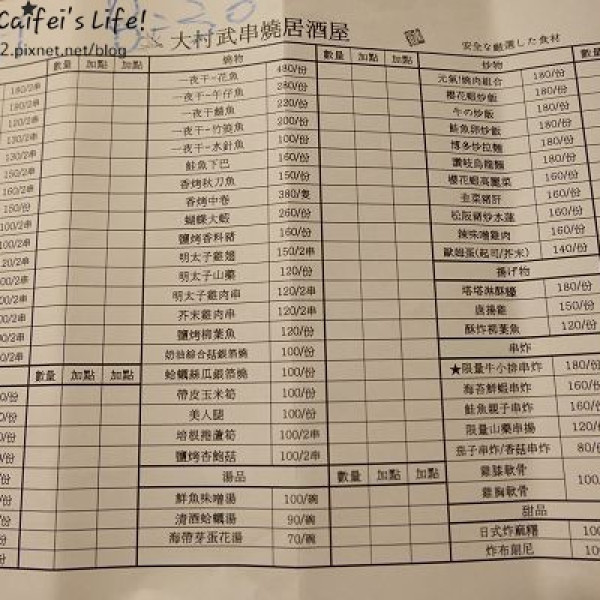 Caifei's Life!
2.pixnet.net/blog
大村武串燒居酒屋
安全な厳選した食材
數量 加點 加點
180/2串
190/2串
120/2串
130/2串
130/2串
150/2串
160/2串
150/份
100/2串
數量 加點 加點
燒物 數量 加點 加點
一夜干-花魚 480/份
一夜干-午仔魚 280/份
一夜干鯖魚 220/份
一夜干-竹筴魚 200/份
一夜干-水針魚 100/份
鮭魚下巴 160/份
香烤秋刀魚 150/份
香烤中卷 380/隻
蝴蝶大蝦 260/份
鹽烤香料豬 160/份
明太子雞翅 150/2串
明太子山藥 120/份
明太子雞肉串 120/2串
芥末雞肉串 120/2串
鹽烤柳葉魚 120/份
奶油綜合菇銀箔燒 100/份
蛤蠣絲瓜銀箔燒 100/份
帶皮玉米筍 100/份
美人腿 100/份
培根捲蘆筍 100/2串
鹽烤杏鮑菇 100/2串
湯品 數量 加點 加點
鮮魚味噌湯 100/碗
清酒蛤蠣湯 90/碗
海帶芽蛋花湯 70/碗
炒物 數量
元氣!燒肉組合 180/份
櫻花蝦炒飯 180/份
牛の炒飯 180/份
鮭魚卵炒飯 180/份
博多炒拉麵 180/份
讚岐烏龍麵 180/份
櫻花蝦高麗菜 160/份
韭菜豬肝 160/份
松阪豬炒水蓮 160/份
辣味噌雞肉 160/份
歐姆蛋(起司/芥末) 140/份
揚げ物
塔塔淋酥雞 180/份
唐揚雞 150/份
酥炸柳葉魚 120/份
串炸
★限量牛小排串炸 180/份
海苔鮮蝦串炸 160/份
鮭魚親子串炸 160/份
限量山藥串揚 120/份
茄子串炸/香菇串炸 80/份
雞膝軟骨
雞胸軟骨
甜品
日式炸麻糬
炸布朗尼